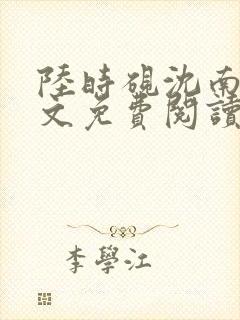 陸時硯沈南
文免費閱讀
李學江